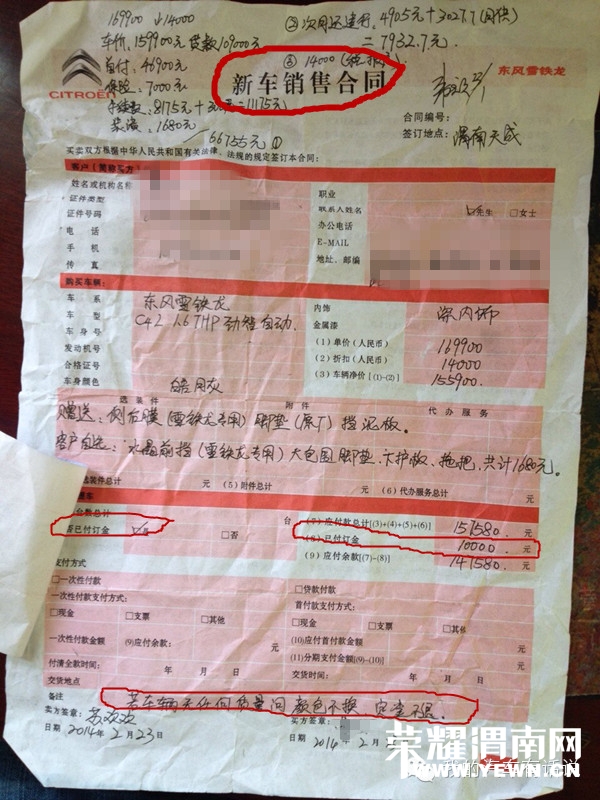 169900 い14000
③次月还建行，4905元+3027.7(月供)
车价，159900元 贷款109000元
=7932.7元
首付，46900元
③14000
保险，7000元
新车销售合同
东风雪铁龙
CITROËN
8175元+
=11175元
合同编号：
装潢，1680元
签订地点：渭南天成
66755元①
买卖双方根据中华人民共和国有关法律、法规的规定签订本合同：
客户（简称买方）
姓名或机构名称
职业
证件类型
联系人姓名 ☑先生 □女士
证件号码
办公电话
电 话
E-MAIL
手 机
地址、邮编
传 真
购买车辆：
车 系 东风雪铁龙
内饰 深内饰
车 型 C42 1.6THP 劲智自动
金属漆
车身号
(1) 单价（人民币） 169900
发动机号
(2) 折扣（人民币） 14000
合格证号
(3) 车辆净价 [(1)-(2)] 155900.
车身颜色 皓月灰
选装件 附件 代办服务
赠送：侧后膜（雪铁龙专用）脚垫（原厂）挡泥板。
客户自选：水晶前挡（雪铁龙专用）大包围脚垫、下护板、拖把，共计1680元。
选装件总计 元 (5) 附件总计 元 (6) 代办服务总计 元
台数总计 台 (7) 应付款总计[(3)+(4)+(5)+(6)] 157580. 元
否已付订金 ☑是 □否 (8) 已付订金 10000. 元
(9) 应付余款[(7)-(8)] 147580. 元
支付方式：
□一次性付款 □贷款付款
一次性付款支付方式： 首付款支付方式：
□现金 □支票 □其他 □现金 □支票 □其他
一次性付款金额 (9)应付余款： 元 (10)应付首付款 元
(11)分期支付金额[(9)-(10)] 元
付清全款时间： 年 月 日 交货时间： 年 月 日
交货地点 交货地点
备注 若车辆无任何质量问 颜色不换 定金不退.
卖方签章：苏欢欢 买方签章：
日期 2014年2月23日 日期 2014年2月
荣耀渭南网
我的汽车有话说
YEWN.CN